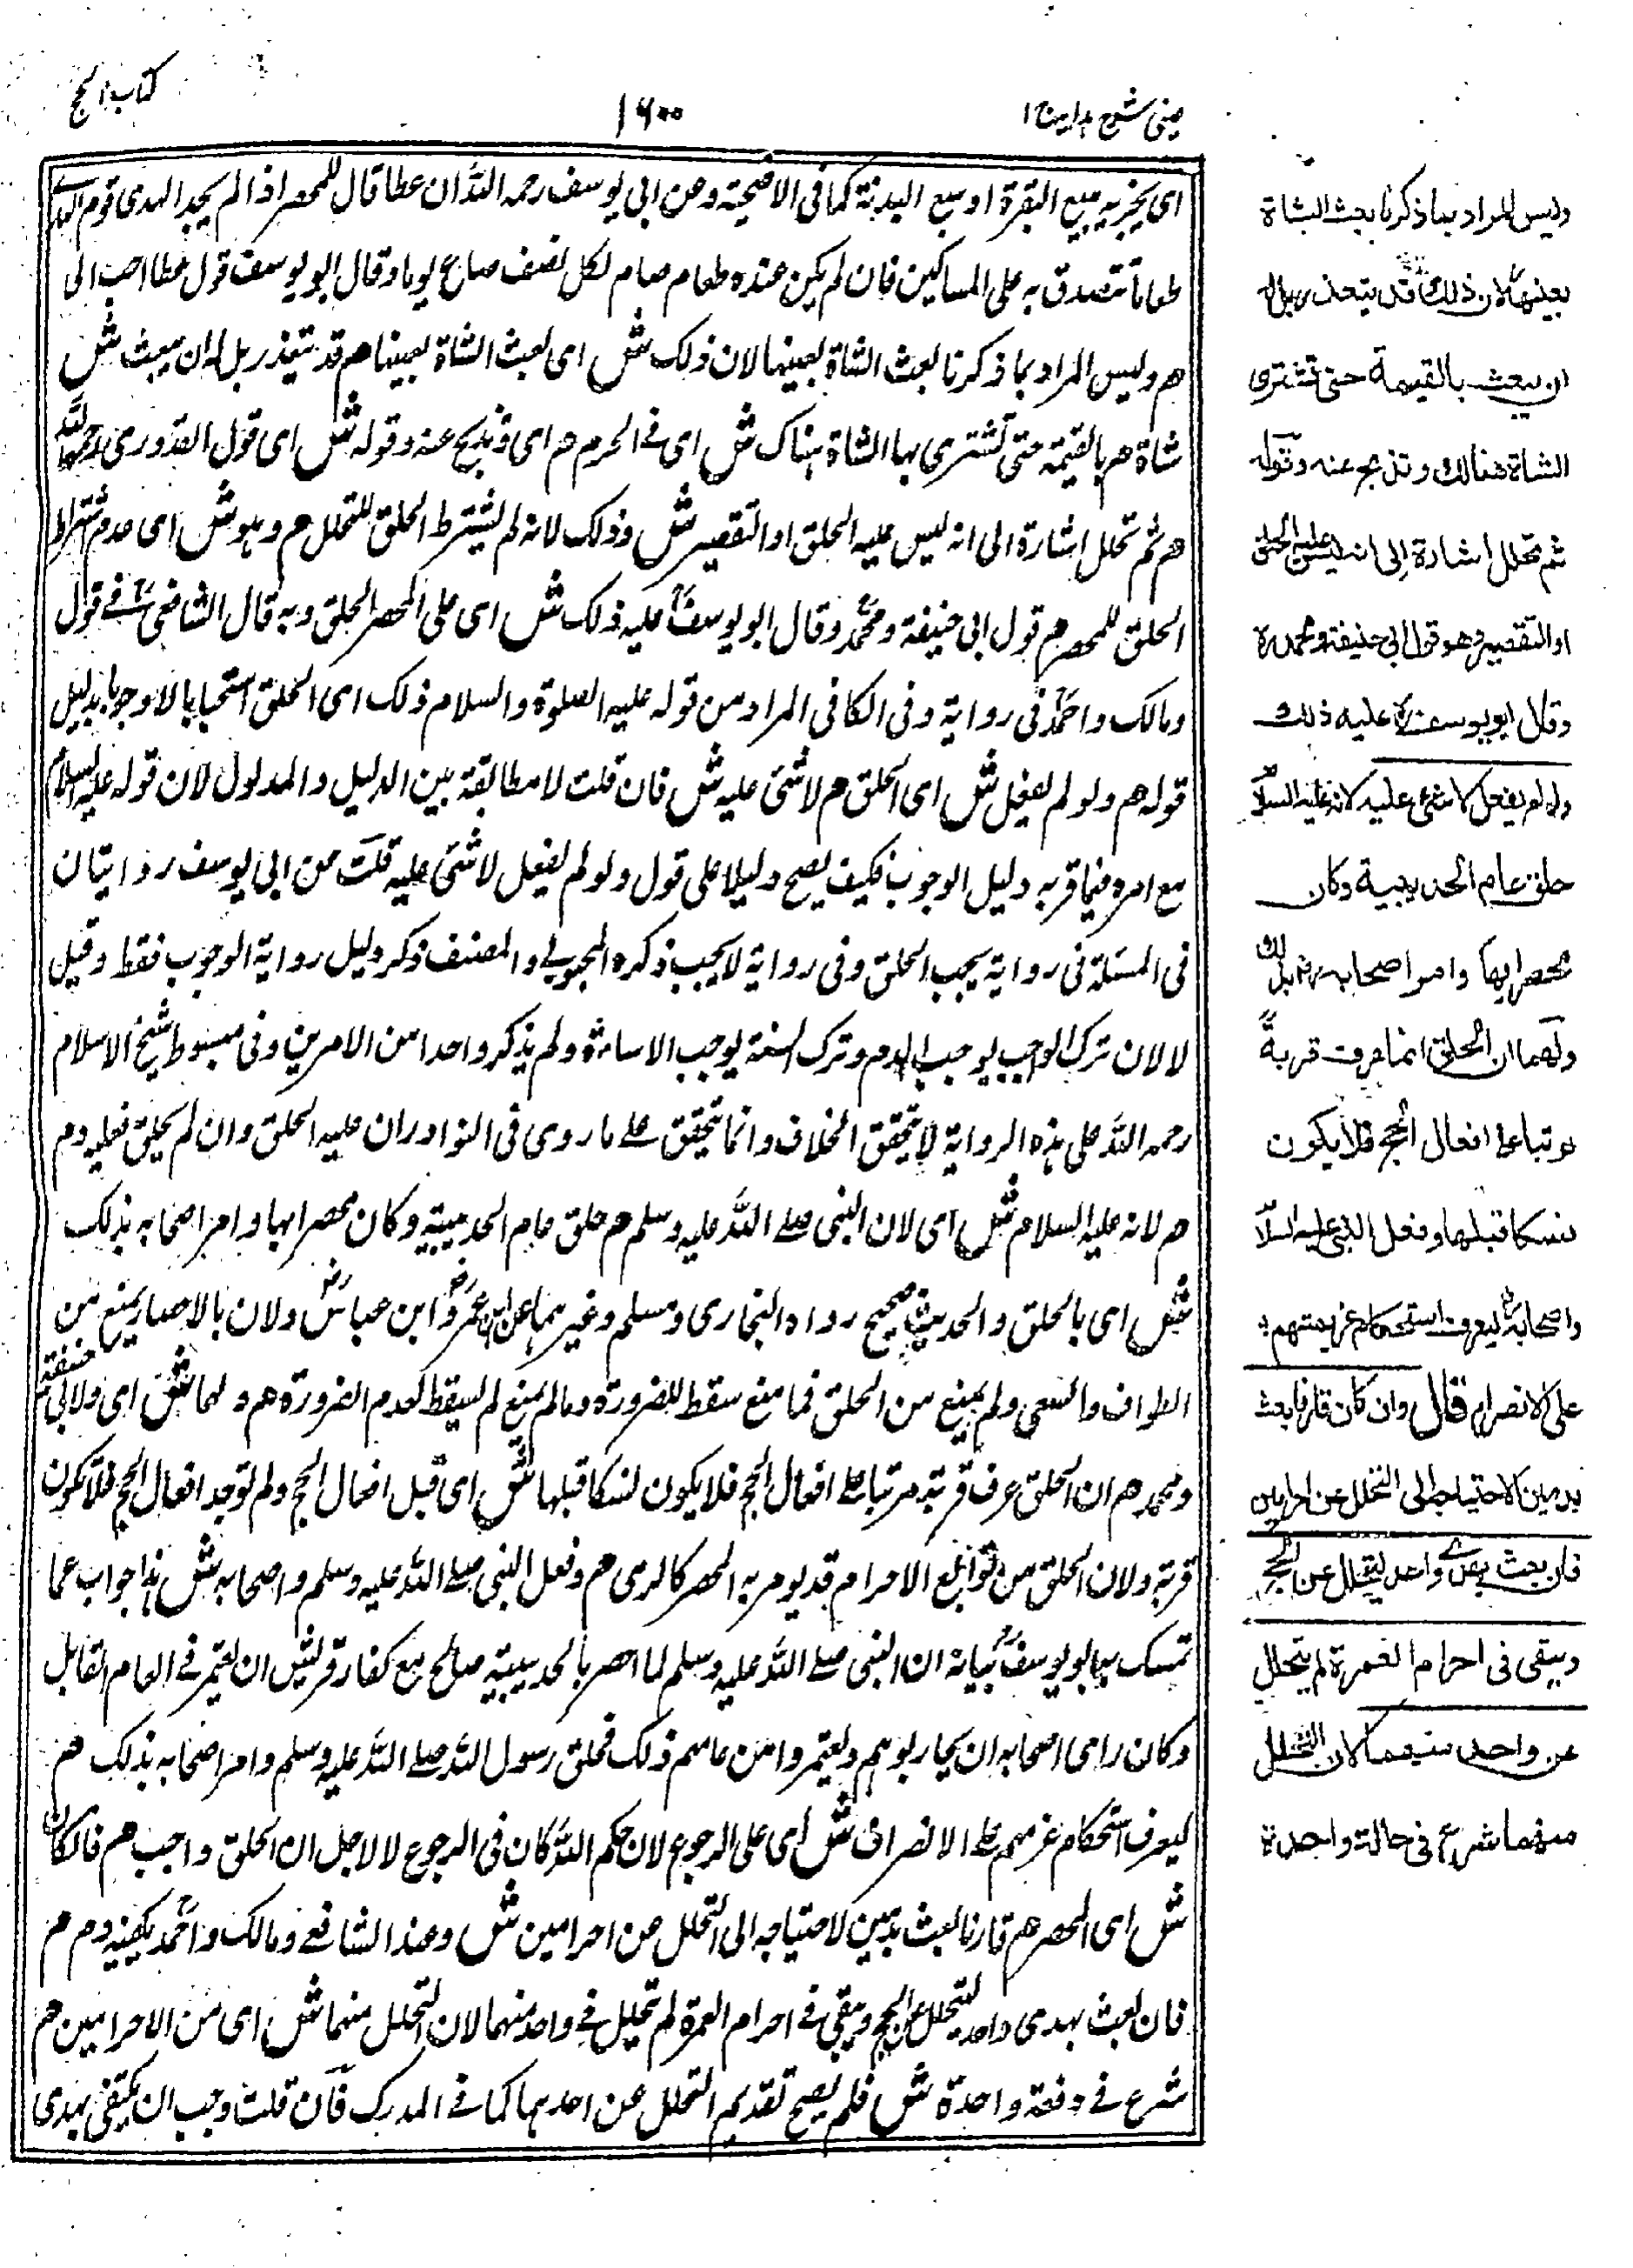 عینی شرح ہدایہ ج ١
١٦٠٠
کتاب الحج
ای یجزیه سبع البقرة او سبع البدنة کما فی الاضحیة وعن ابی یوسف رحمه الله ان عطا قال للمحصر اذا لم یجد الهدی قوم الهدی
طعاما تتصدق به علی المساکین فان لم یکن عنده طعام صام لکل نصف صاع یوما وقال ابو یوسف قول عطا احب الی
هم ولیس المراد بما ذکرنا بعث الشاة بعینها لان ذلک ش ای بعث الشاة بعینها هم قد یتعذر بل له ان یبعث ش
شاة هم بالقیمة حتی تشتری بها الشاة هناک ش ای فی الحرم هم ای وتذبح عنه وقوله ش ای قول القدوری رحمه الله
هم ثم تحلل اشارة الی انه لیس علیه الحلق او التقصیر ش وذلک لانه لم یشترط الحلق للتحلل هم وهو ش ای عدم اشتراط
الحلق للمحصر هم قول ابی حنیفة ومحمد وقال ابو یوسف علیه ذلک ش ای علی المحصر الحلق وبه قال الشافعی فی قول
ومالک واحمد فی روایة وفی الکافی المراد من قوله علیه الصلوة والسلام ذلک ای الحلق استحبابا لا وجوبا بدلیل
قوله هم ولو لم یفعل ش ای الحلق هم لا شئ علیه ش فان قلت لا مطابقة بین الدلیل والمدلول لان قوله علیه السلام
مع امره فیما قربه دلیل الوجوب فکیف یصح دلیلا علی قول ولو لم یفعل لا شئ علیه قلت عن ابی یوسف روایتان
فی المسئلة فی روایة یجب الحلق وفی روایة لا یجب ذکره المحبوبی والمصنف ذکر دلیل روایة الوجوب فقط وقیل
لا لان ترک الواجب یوجب الدم وترک السنة یوجب الاساءة ولم یذکر واحدا من الامرین وفی مبسوط شیخ الاسلام
رحمه الله علی هذه الروایة لا یتحقق الخلاف وانما یتحقق علے ما روی فی النوادر ان علیه الحلق وان لم یحلق فعلیه دم
هم لانه علیه السلام ش ای لان النبی صلے الله علیه وسلم هم حلق عام الحدیبیة وکان محصرا بها وامر اصحابه بذلک
ش ای بالحلق والحدیث صحیح رواه البخاری ومسلم وغیرهما عن ابن عمرؓ وابن عباسؓ ولان بالاحصار یمنع من
الطواف والسعی ولم یمنع من الحلق فما منع سقط للضرورة وما لم یمنع لم یسقط لعدم الضرورة هم ولهما ش ای ولابی حنیفة
ومحمد هم ان الحلق عرف قربة مرتبا علے افعال الحج فلا یکون نسکا قبلها ش ای قبل افعال الحج ولم توجد افعال الحج فلا تکون
قربة ولان الحلق من توابع الاحرام قد یومر به المحصر کالرمی هم وفعل النبی صلے الله علیه وسلم واصحابه ش هذا جواب عما
تمسک به ابو یوسف بیانه ان النبی صلے الله علیه وسلم لما احصر بالحدیبیة صالح مع کفار قریش ان یعتمر فی العام القابل
وکان رای اصحابه ان یحاربوهم ویعتمروا من عامهم ذلک فحلق رسول الله صلے الله علیه وسلم وامر اصحابه بذلک هم
لیعرف استحکام عزمهم علے الانصراف ش ای علی الرجوع لان حکم الله کان فی الرجوع لا لاجل ان الحلق واجب هم فان کان
ش ای المحصر هم قارنا بعث بدمین لاحتیاجه الی التحلل عن احرامین ش وعند الشافعے ومالک واحمد یکفیه دم هم
فان بعث بهدی واحد لیتحلل عن الحج ویبقی فے احرام العمرة لم تحلل فے واحد منهما لان التحلل منهما ش ای من الاحرامین هم
شرع فے دفعة واحدة ش فلم یصح تقدیم التحلل عن احدهما کما فے المدرک فان قلت وجب ان یکتفی بهدی
ولیس المراد بما ذکرنا بعث الشاة
بعینها لان ذلك قد یتعذر بل له
ان یبعث بالقیمة حتی تشتری
الشاة هنالك وتذبح عنه وقوله
ثم تحلل اشارة الی انه لیس علیه الحلق
او التقصیر وهو قول ابی حنیفة ومحمد
وقال ابو یوسف علیه ذلك
ولو لم یفعل لا شئ علیه لانه علیه السلام
حلق عام الحدیبیة وکان
محصرا بها وامر اصحابه بذلك
ولهما ان الحلق انما عرف قربة
مرتبا علی افعال الحج فلا یکون
نسکا قبلها وفعل النبی علیه السلام
واصحابه لیعرف استحکام عزیمتهم
علی الانصرام قال وان کان قارنا بعث
بدمین لاحتیاجه الی التحلل عن احرامین
فان بعث بهدی واحد لیتحلل عن الحج
ویبقی فی احرام العمرة لم یتحلل
عن واحد منهما لان التحلل
منهما شرع فی حالة واحدة